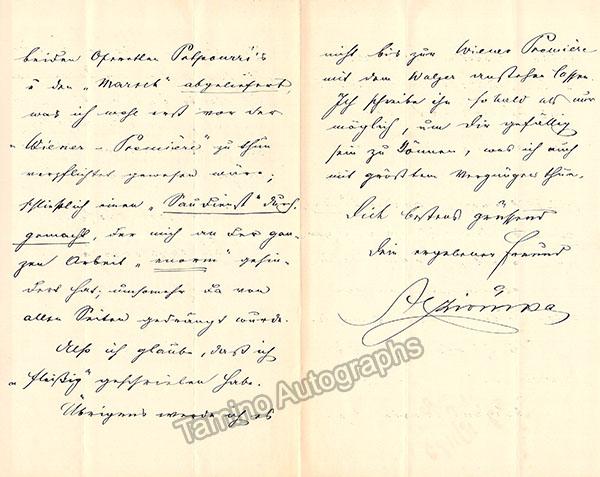 beiden Operetten Potpourri's
u den „Marsch" abgeliefert
was ich wohl erst vor der
„Wiener-Première" zu thun
verpflichtet gewesen wäre;
schließlich einen „Saudienst" durch-
gemacht, der mich an der gan-
zen Arbeit „enorm" gehin-
dert hat; umsomehr da von
allen Seiten gedrängt wurde.
Also ich glaube, daß ich
„fleißig" geschrieben habe.
Übrigens werde ich es
nicht bis zur Wiener Première
mit dem Walzer anstehen lassen.
Ich schreibe ihn sobald als nur
möglich, um Dir gefällig
sein zu können, was ich auch
mit größtem Vergnügen thue.
Dich bestens grüßend
Dein ergebener Freund
Tamino Autographs